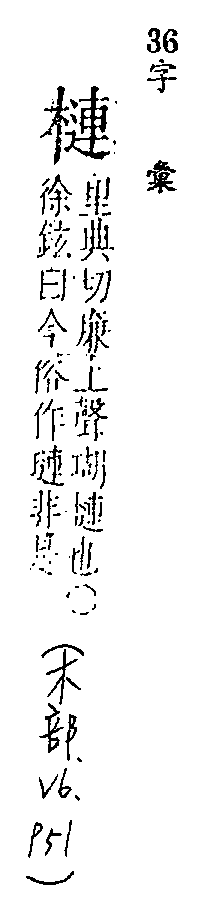 36字　彙
槤
里典切廉上聲瑚槤也○
徐鉉曰今俗作璉非是
(木部、V6、P51)